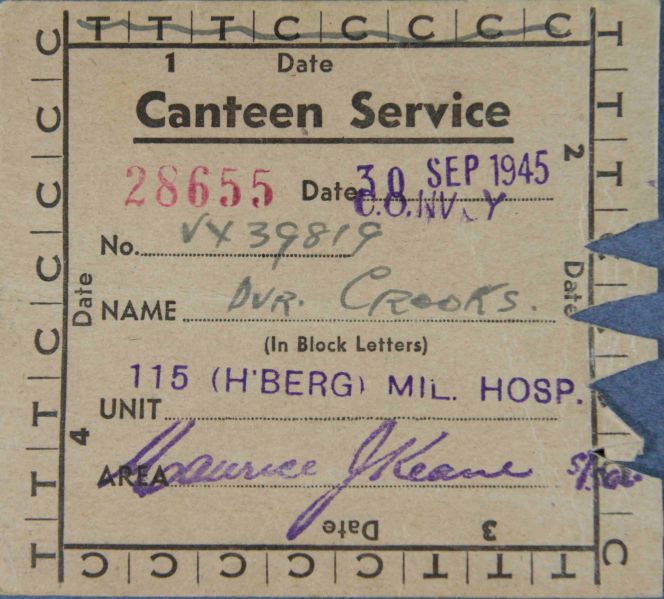 T T T C C C C C
1 Date
Canteen Service
28655 Date 30 SEP 1945
No. VX39819
NAME DVR. CROOKS.
(In Block Letters)
115 (H'BERG) MIL. HOSP.
UNIT
AREA Maurice J Keane
2 Date
T T T
3 Date
C T T T C C C C C
4 Date
T T T C C C C C